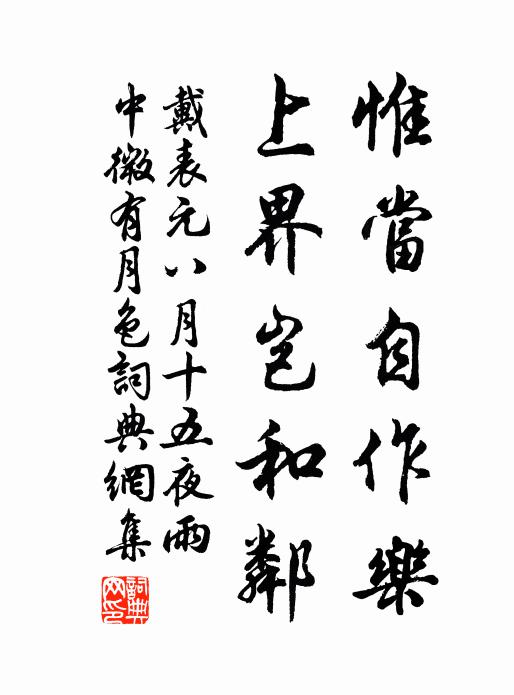 惟當自作樂
上界豈和鄰
戴表元八月十五夜雨
中微有月色詞典網集
詞典
网印